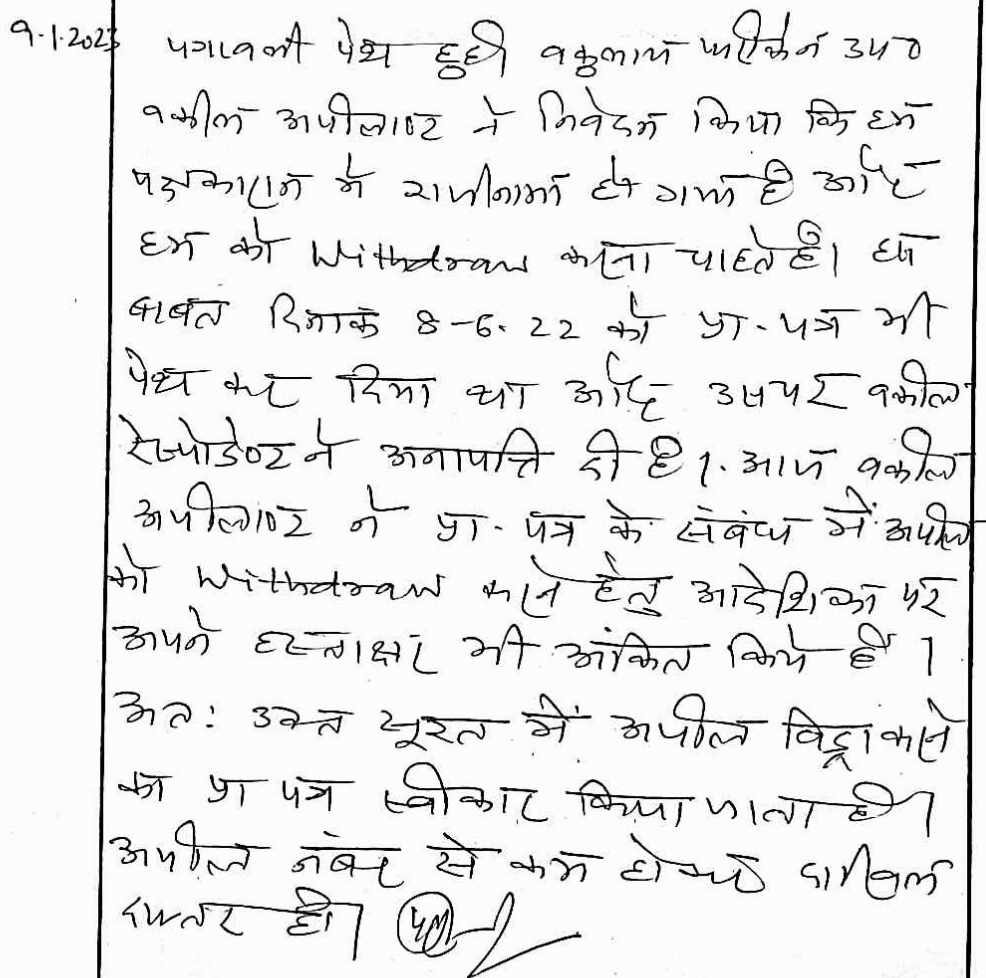 9.1.2023 पत्रावली पेश हुई वकुलाय फरीकेन उप०
वकील अपीलाण्ट ने निवेदन किया कि हम
पक्षकारान में राजीनामा हो गया है और
हम को Withdraw करना चाहते है। इस
बाबत दिनांक 8-6-22 को प्रा. पत्र भी
पेश कर दिया था और उसपर वकील
रेस्पोडेण्ट ने अनापत्ति दी है। आज वकील
अपीलाण्ट ने प्रा. पत्र के संबंध में अपील
को Withdraw करने हेतु आदेशिका पर
अपने हस्ताक्षर भी अंकित किये है।
अत: उक्त सूरत में अपील विड्रा करने
का प्रा पत्र स्वीकार किया जाता है।
अपील नंबर से कम होकर दाखिल
दफ्तर हो।